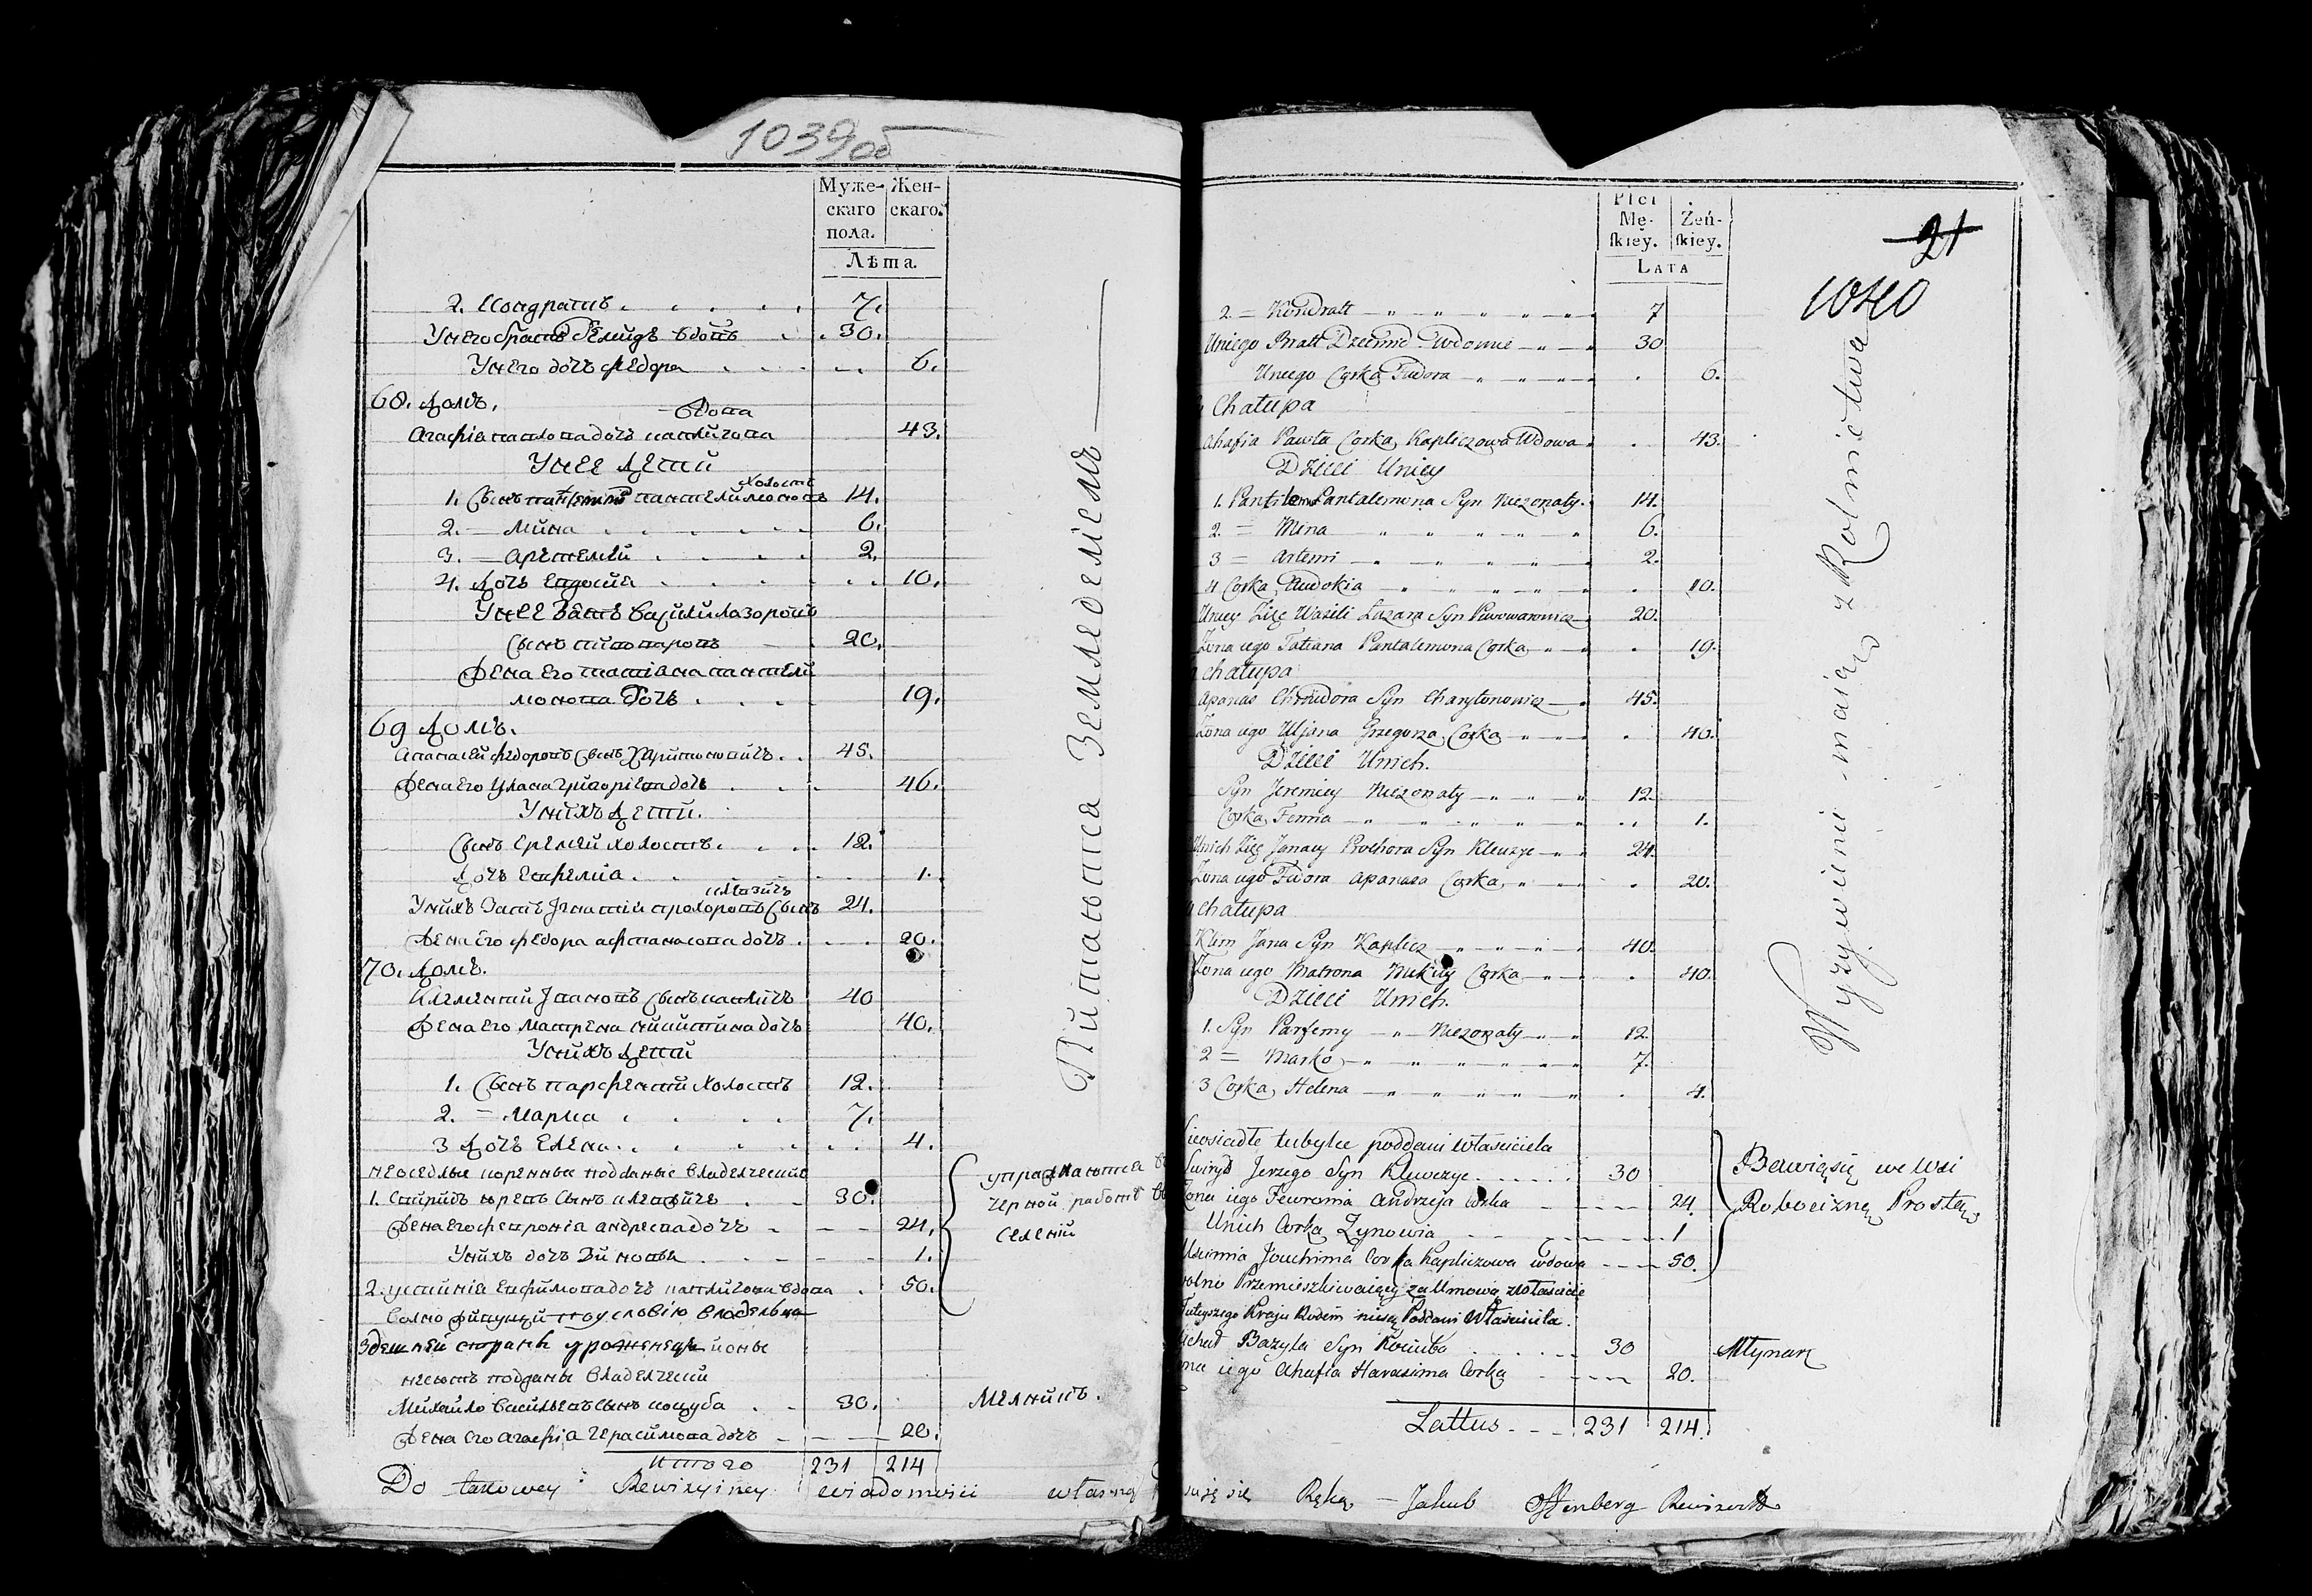 1039об
Муже-
скаго
пола.
Жен-
скаго.
Лѣта.
2. Кондратъ 7.
Унего братъ Демидъ вдовъ 30.
Унего дочь Федора 6.
68. Домъ.
Агафiя павлова дочь капличова вдова 43.
Унее Дети
1. Сынъ пантелимонъ холостъ 14.
2. — Мина 6.
3. — Артемей 2.
4. Дочь Евдокия 10.
Унее Зять Василий лазоровъ
Сынъ пивоваровъ 20.
Жена его татiяна пантели
монова Дочь 19.
69 Домъ.
Афанасей федоровъ Сынъ Харитоновичъ 45.
Жена его Уляна григорiева дочь 46.
Унихъ Дети.
Сынъ Еремей холостъ 12.
Дочь Евфемiа 1.
Унихъ Зять Игнатiй прохоровъ Сынъ 24.
Жена его федора афанасова дочь 20.
70. Домъ.
Клементий Iвановъ Сынъ капличъ 40
Жена его Матрена никитина дочь 40.
Унихъ Дети
1. Сынъ парфентий холостъ 12.
2. — Марка 7.
3 Дочь Елена 4.
неоседлые коренные подданые владелческие
1. Свиридъ юревъ Сынъ 30.
Жена его феврониа андреева дочь 24.
Унихъ дочь Зиновья 1.
2. устинiа Ефимова дочь капличова вдова 50.
Волно живущий по условiю Владельца
Здешней стороны уроженецъ и оные
несуть подданы Владелческий
Михайло Васильевъ Сынъ коцуба 30.
Жена его агафiа герасимова дочь 20.
Итого 231 214
Питаются Земледелiемъ
упражняются в
черной работе в
селении
Мелникъ.
Do takowey Rewizyiney wiadomości własną
Płci
Mę-
skiey.
Żeń-
skiey.
Lata
21
1040
2. = Kondratt 7
Uniego Bratt Dziemid Wdowiec 30
Uniego Corka Fiudora 6.
Chałupa
Ahafia Pawła Corka Kapliczowa Wdowa 43.
Dzieci Uniey
1. Pantilemon Pantalemona Syn Niezonaty 14.
2. = Mina 6.
3 = Artemi 2.
4 Corka Audokia 10.
Uniey Zięć Wasili Łazara Syn Piwowarowicz 20.
Żona iego Tatiana Pantalemona Corka 19.
chałupa
Apanas Chwiudora Syn Charytonowicz 45.
Żona iego Uljana Grzegorza Corka 40.
Dzieci Unich.
Syn Jeremiey Niezonaty 12.
Corka Femia 1.
Unich Zięć Janacy Prochora Syn Kleuzyc 24.
Żona iego Fiudora Apanasa Corka 20.
chałupa
Klim Jana Syn Kaplicz 40.
Żona iego Matrona Mikity Corka 40.
Dzieci Unich.
1. Syn Parfemy Niezonaty 12.
2 = Marko 7.
3 Corka Helena 4.
nieosiadłe tubylce poddani Własciciela
Swiryd Jerzego Syn Kluwczyc 30
Żona iego Fewronia Andrzeja Corka 24.
Unich Corka Zynowia 1
Uscimia Jouchima Corka Kapliczowa wdowa 50.
wolno Przemieszkiwaiący za Umową z Włascicie
Tuteyszego Kraiu Rodem niesą Poddani Własciciela.
Michał Bazyla Syn Kocuba 30
Żona iego Ahafia Harasima Corka 20.
Lattus 231 214.
Wyzywienie maiąc z Rolnictwa
Bawią się we Wsi
Robocizną Prostą
Młynarz
Ręką — Jakub Offenberg Rewizor